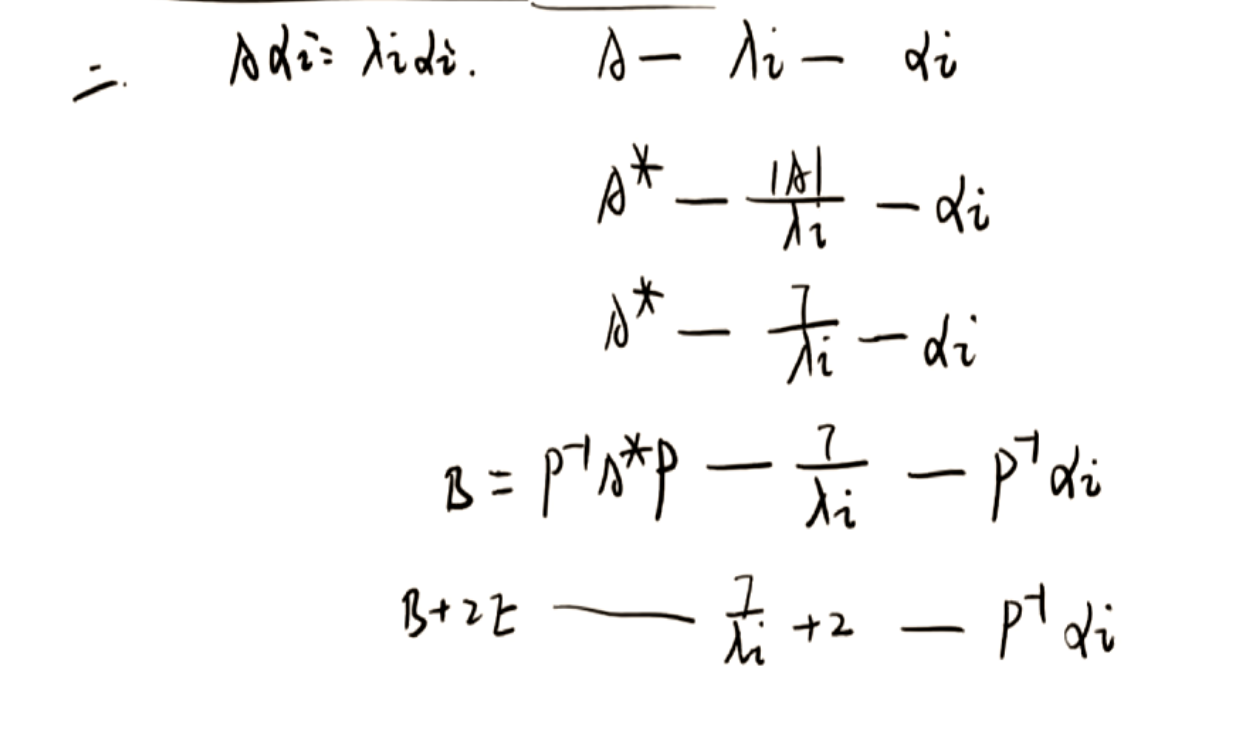 二. Aαi = λiαi. A — λi — αi
A* — |A|/λi — αi
A* — 7/λi — αi
B = P⁻¹A*P — 7/λi — P⁻¹αi
B+2E — 7/λi +2 — P⁻¹αi